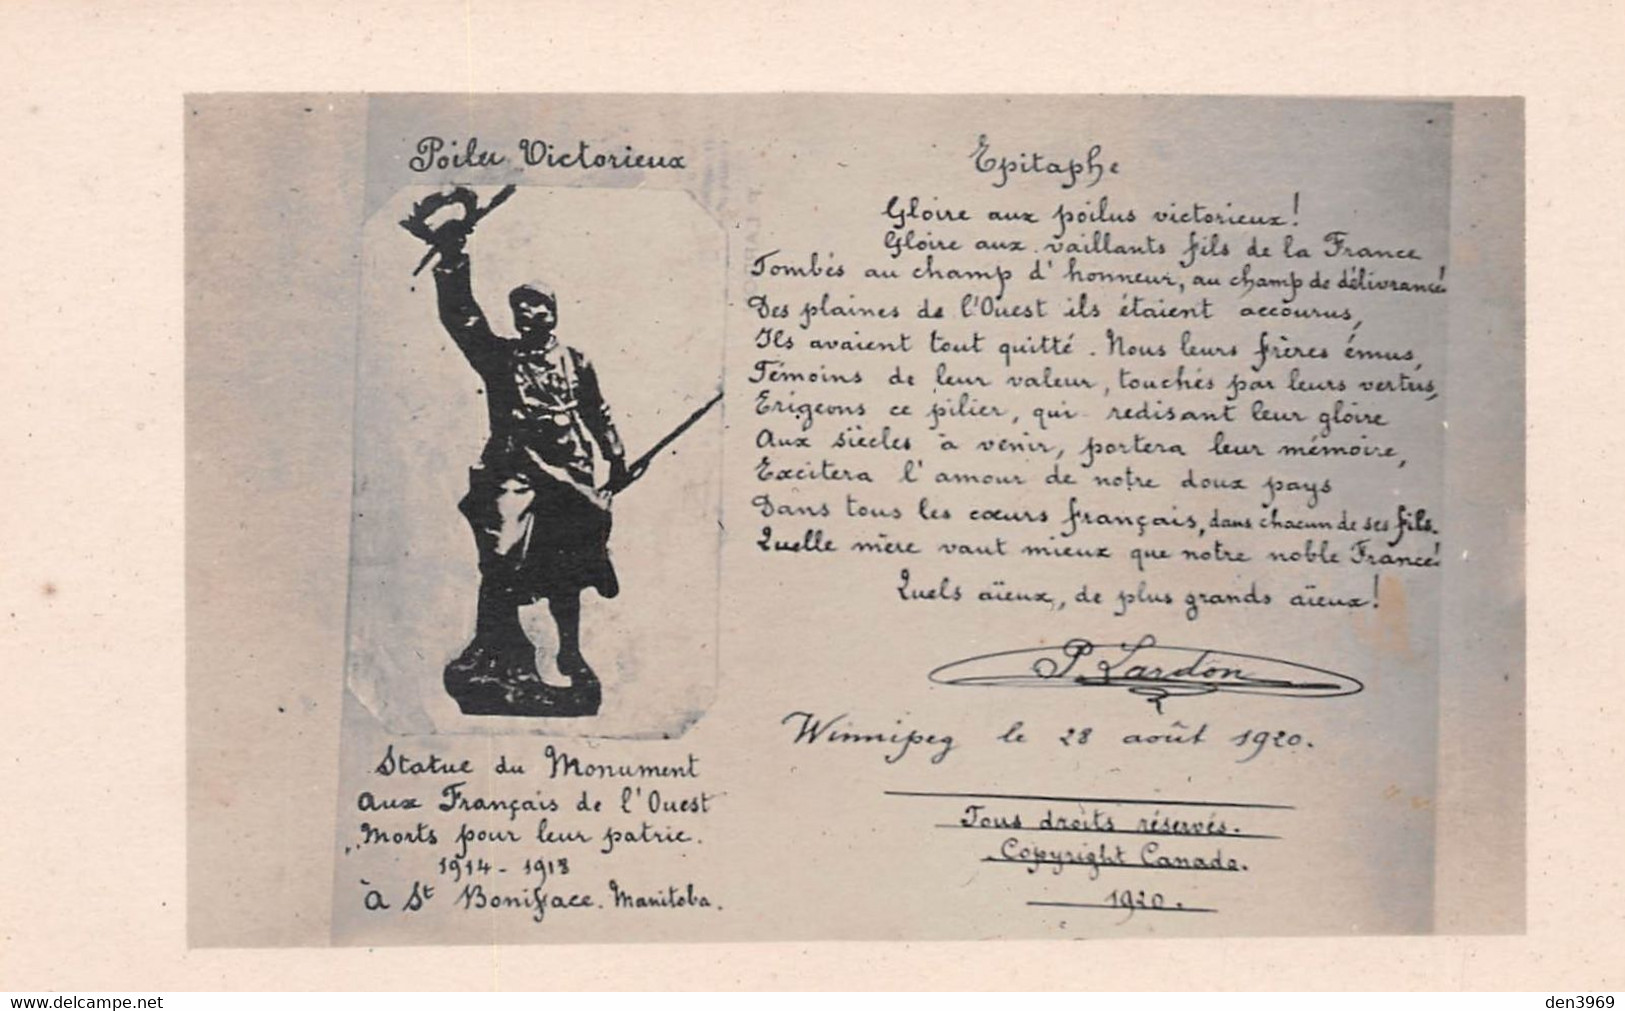 Poilu Victorieux
Statue du Monument
aux Français de l'Ouest
Morts pour leur patrie.
1914 - 1918
à St Boniface. Manitoba.
Epitaphe
Gloire aux poilus victorieux!
Gloire aux vaillants fils de la France
Tombés au champ d'honneur, au champ de délivrance!
Des plaines de l'Ouest ils étaient accourus,
Ils avaient tout quitté. Nous leurs frères émus,
Témoins de leur valeur, touchés par leurs vertus,
Erigeons ce pilier, qui redisant leur gloire
Aux siècles à venir, portera leur mémoire,
Excitera l'amour de notre doux pays
Dans tous les cœurs français, dans chacun de ses fils.
Quelle mère vaut mieux que notre noble France!
Quels aïeux, de plus grands aïeux!
P. Lardon
Winnipeg le 28 août 1920.
Tous droits réservés.
Copyright Canada.
1920.
www.delcampe.net
den3969